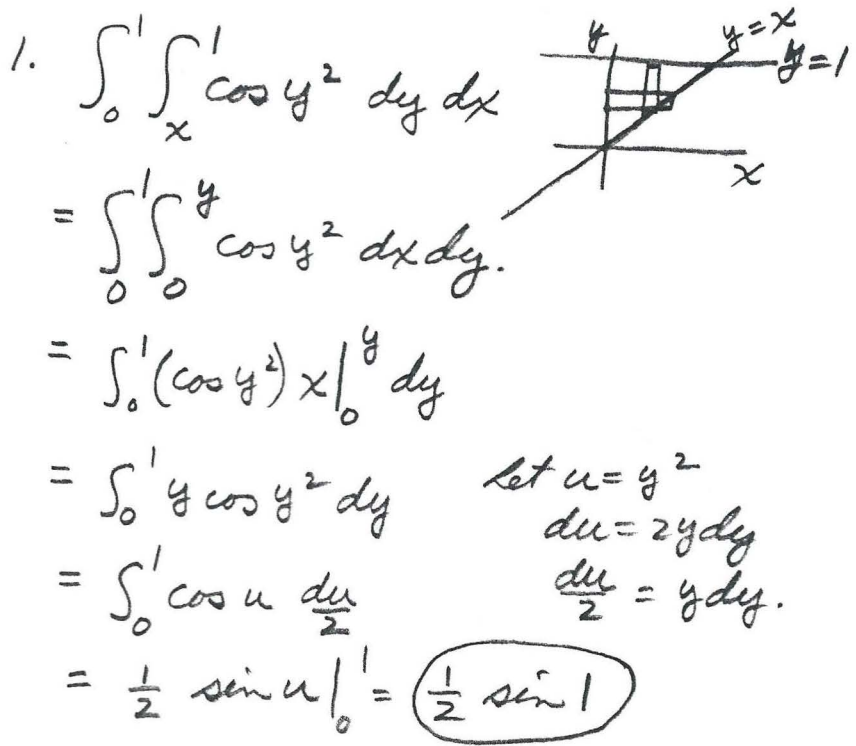 1. ∫₀¹ ∫ₓ¹ cos y² dy dx
y
y = x
y = 1
x
= ∫₀¹ ∫₀ʸ cos y² dx dy.
= ∫₀¹ (cos y²) x |₀ʸ dy
= ∫₀¹ y cos y² dy
let u = y²
du = 2y dy
= ∫₀¹ cos u du/2
du/2 = y dy.
= 1/2 sin u |₀¹ = 1/2 sin 1